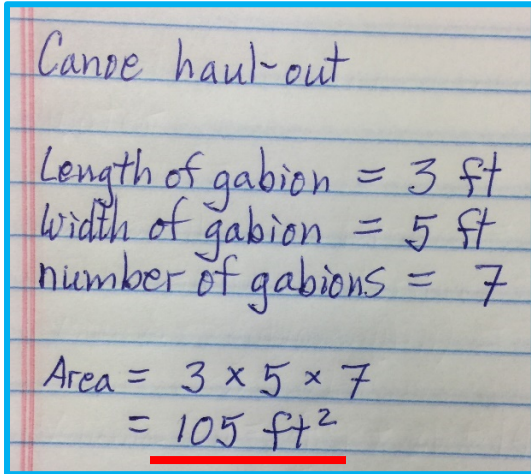 Canoe haul-out
Length of gabion = 3 ft
Width of gabion = 5 ft
number of gabions = 7
Area = 3 × 5 × 7
= 105 ft²